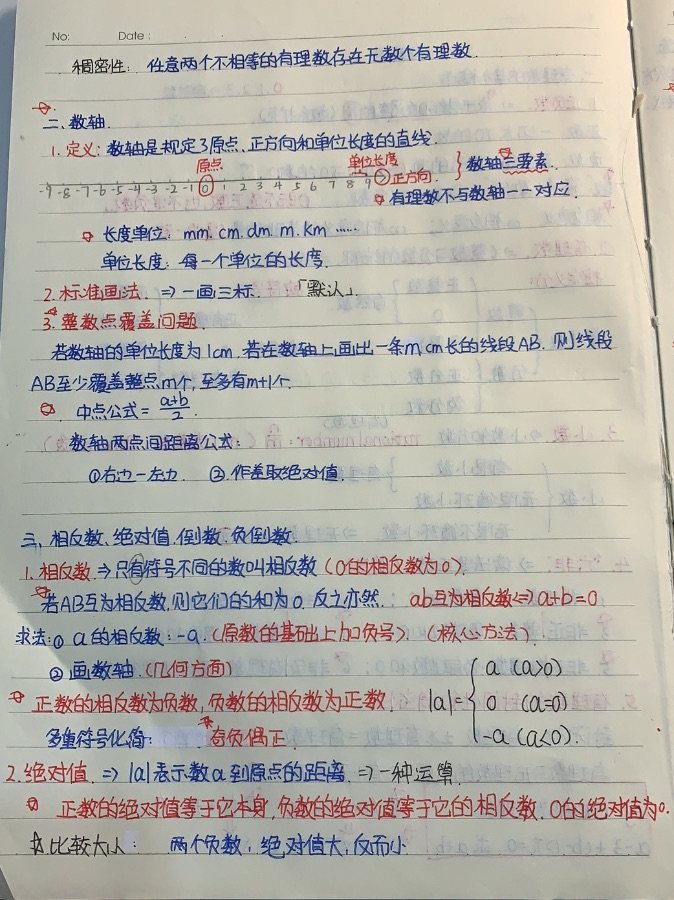 No: Date:
稠密性: 任意两个不相等的有理数存在无数个有理数.
二、数轴.
1.定义: 数轴是规定了原点、正方向和单位长度的直线.
原点 单位长度
-9 -8 -7 -6 -5 -4 -3 -2 -1 0 1 2 3 4 5 6 7 8 9 正方向. } 数轴三要素.
有理数不与数轴一一对应.
长度单位: mm. cm. dm. m. km ……
单位长度: 每一个单位的长度.
2.标准画法. ⇒ 一画三标. 「默认」
3.整数点覆盖问题.
若数轴的单位长度为1cm. 若在数轴上画出一条m cm长的线段AB. 则线段
AB至少覆盖整点m个, 至多有m+1个.
中点公式 = a+b/2.
数轴两点间距离公式:
①右边-左边. ②.作差取绝对值.
三、相反数、绝对值、倒数、负倒数.
1.相反数 ⇒ 只有符号不同的数叫相反数 (0的相反数为0).
若AB互为相反数, 则它们的和为0. 反之亦然. ab互为相反数⇔a+b=0
求法: ① a的相反数: -a. (原数的基础上加负号). (核心方法).
② 画数轴. (几何方面)
正数的相反数为负数, 负数的相反数为正数. |a|= { a (a>0) 0 (a=0) -a (a<0).
多重符号化简: 奇负偶正.
2.绝对值. ⇒ |a|表示数a到原点的距离. ⇒ 一种运算.
正数的绝对值等于它本身, 负数的绝对值等于它的相反数. 0的绝对值为0.
比较大小: 两个负数, 绝对值大, 反而小.